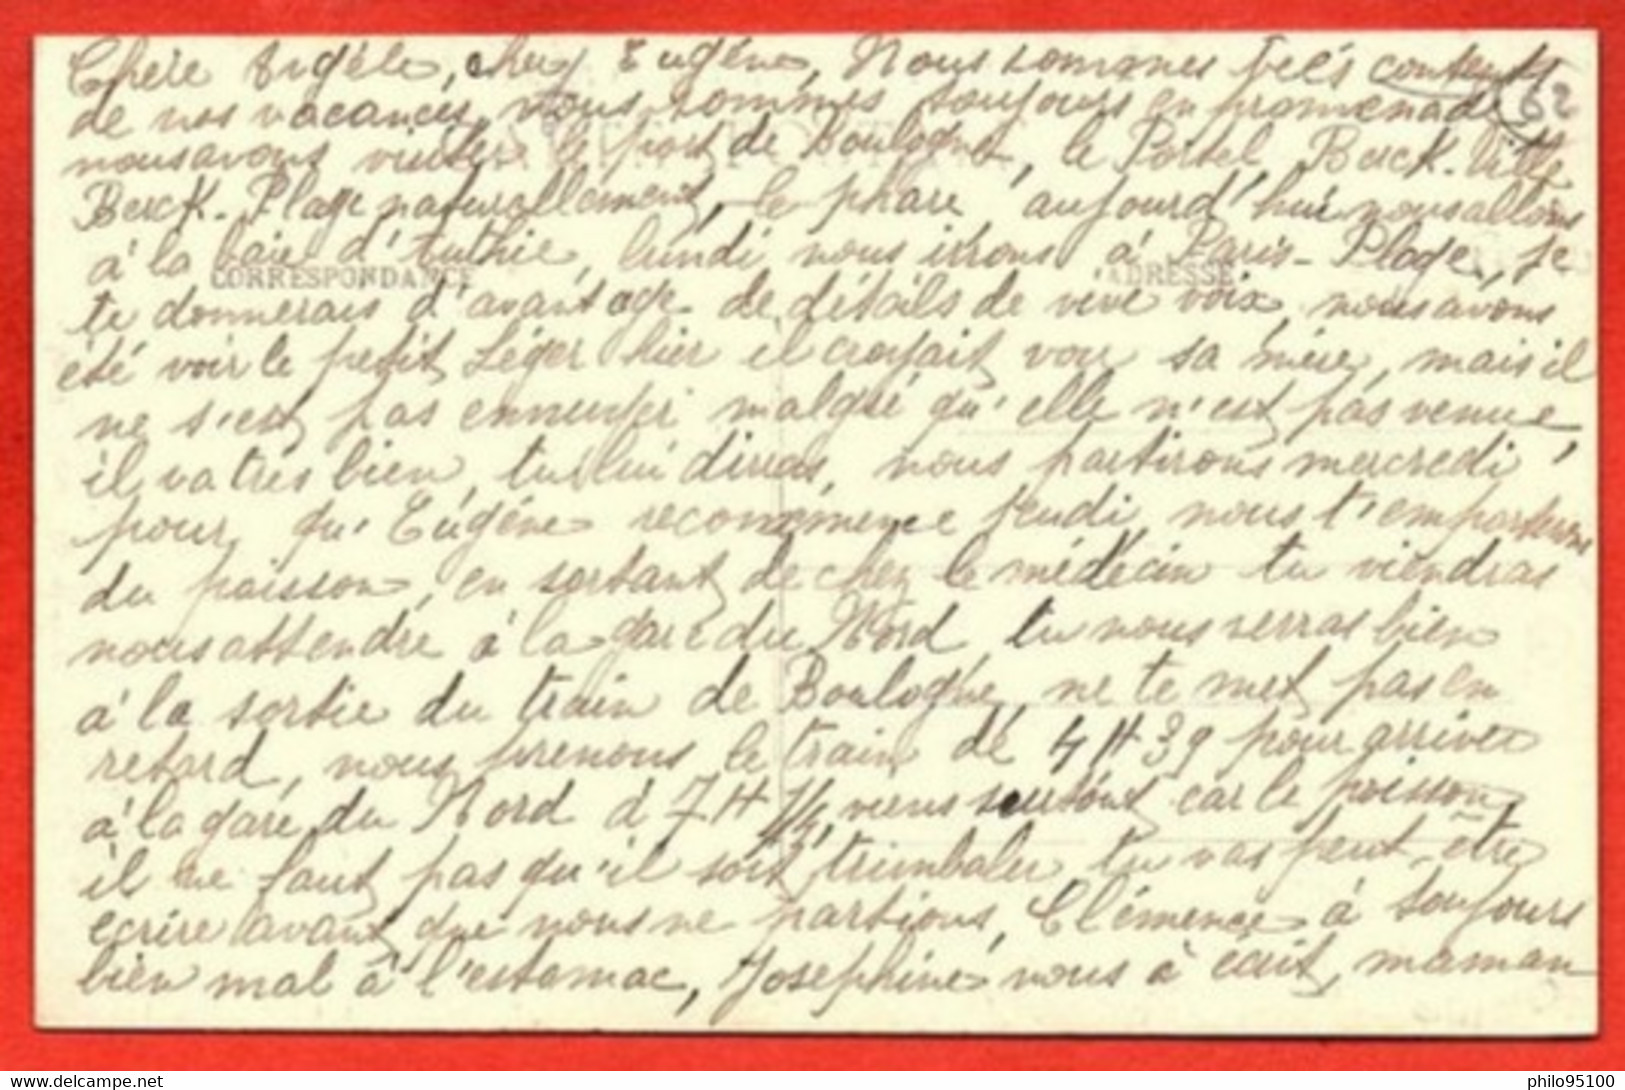 Chère Angèle, cher Eugène, Nous sommes très contents
62
de nos vacances, nous sommes toujours en promenade
nous avons visiter le port de Boulogne, le Portel, Berck-Ville
Berck-Plage naturellement, le phare aujourd'hui nous allons
à la baie d'Authie, lundi nous irrons à Paris-Plage, je
CORRESPONDANCE ADRESSE
te donnerais d'avantage de détails de vive voix, nous avons
été voir le petit Léger hier il croyait voir sa mère, mais il
ne s'est pas ennuyer malgré qu'elle n'est pas venue,
il va très bien, tu lui dirras, nous partirons mercredi
pour qu'Eugène recommence jeudi, nous t'emporterons
du poisson, en sortant de chez le médecin tu viendras
nous attendre à la gare du Nord, tu nous verras bien
à la sortie du train de Boulogne, ne te met pas en
retard, nous prenons le train de 4 H 39 pour arriver
à la gare du Nord à 7 H 1/2, viens surtout car le poisson,
il ne faut pas qu'il soit trimbaler, tu vas peut-être
ecrire avant que nous ne partions, Clémence à toujours
bien mal à l'estomac, Josephine nous à écrit, maman
philo95100